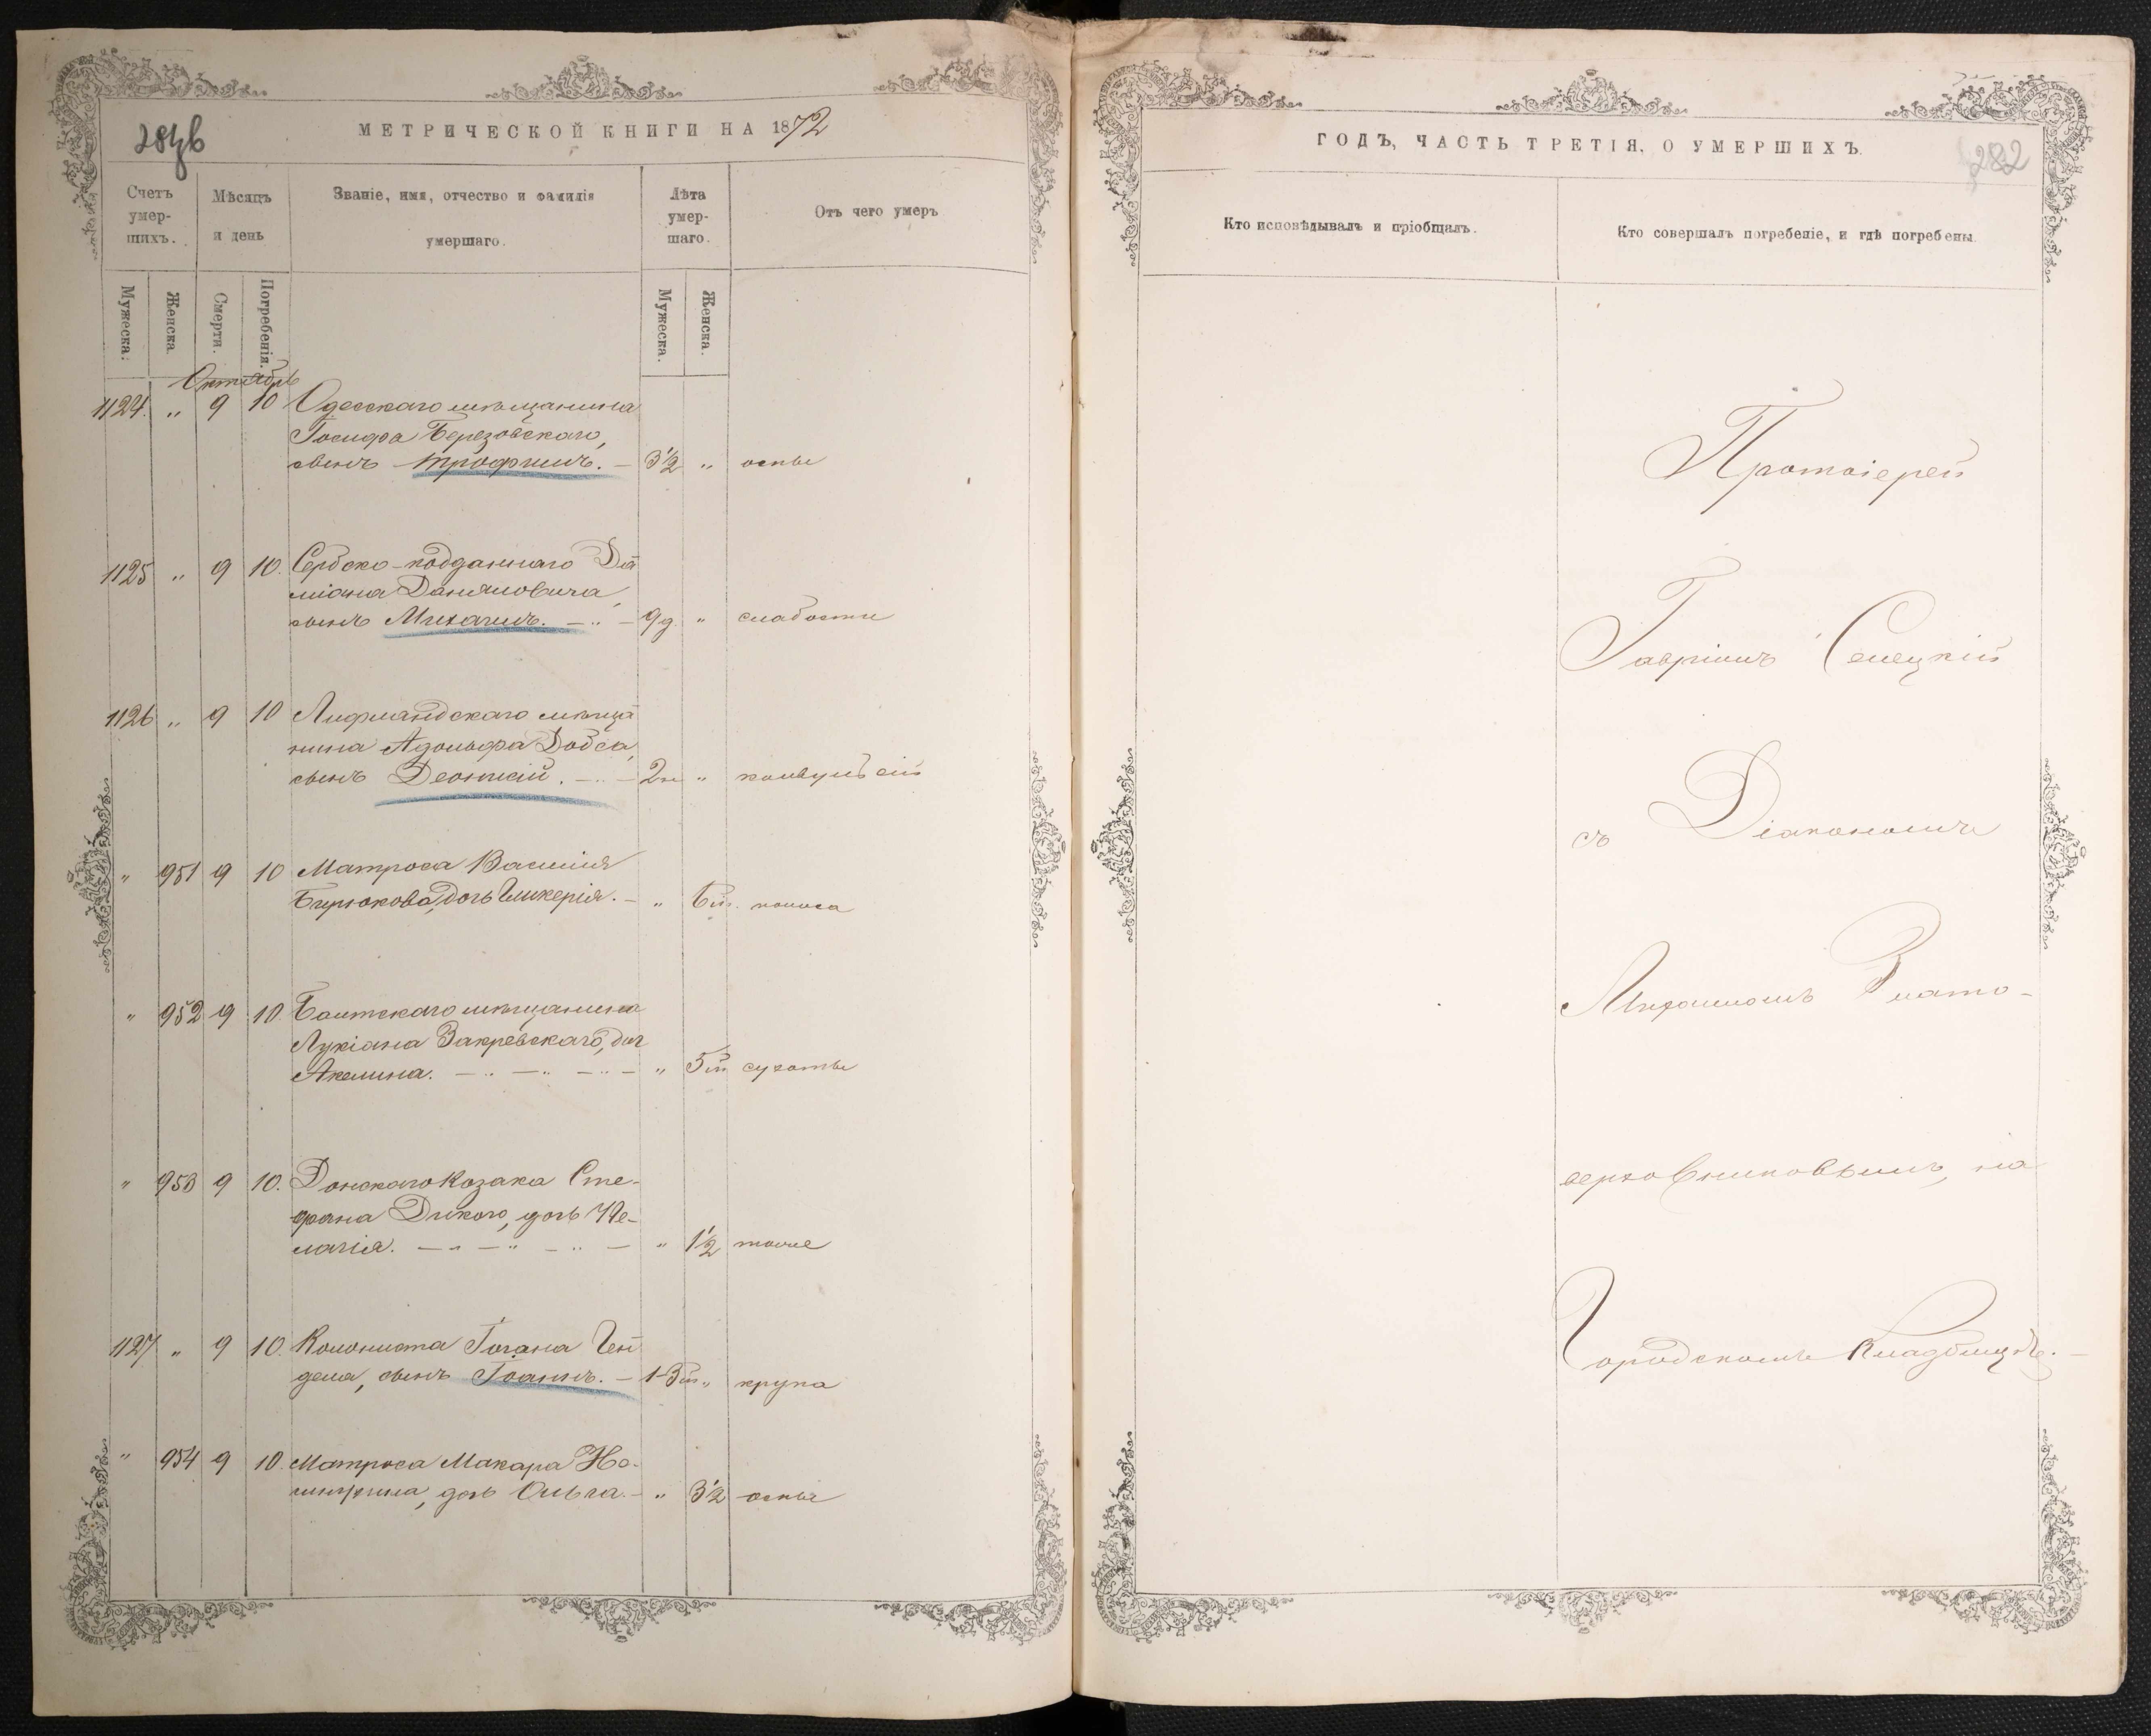 МЕТРИЧЕСКОЙ КНИГИ НА 1872
Счетъ умер-шихъ.
Мѣсяцъ и день
Званіе, имя, отчество и фамилія умершаго.
Лѣта умер-шаго.
Отъ чего умеръ
Мужеска.
Женска.
Смерти.
Погребенія.
Мужеска.
Женска.
Октябрь
1124. „ 9 10 Одесскаго мѣщанина
Іосифа Березовскаго,
сынъ Трофимъ. — 3½ „ оспы
1125 „ 9 10. Сербско-подданнаго Да
міана Даниловича,
сынъ Михаилъ. — „ — 9д. „ слабости
1126 „ 9 10 Лифляндскаго мѣща
нина Адольфа Добса,
сынъ Леонтій. — „ — 2н „ конвульсій
„ 951 9 10 Матроса Василія
Бирюкова, дочь Гликерія. — „ 6м. поноса
„ 952 9 10. Балтскаго мѣщанина
Лукіана Закревскаго, доч
Акелина. — „ — „ — „ — „ 5м сухоты
„ 953 9 10. Донскаго Козака Сте-
фана Дикого, дочь Пе-
лагія. — „ — „ — „ — „ 1½ тоже
1127 „ 9 10. Колониста Іогана
сынъ Іоаннъ. — 1-3м „ крупа
„ 954 9 10. Матроса Макара
дочь Ольга. — „ 3½ оспы
ГОДЪ, ЧАСТЬ ТРЕТІЯ, О УМЕРШИХЪ.
282
Кто исповѣдывалъ и пріобщалъ.
Кто совершалъ погребеніе, и гдѣ погребены.
Протоіерей
Гавріилъ Селецкій
съ Діакономъ
Михаиломъ Злато-
верховниковымъ, на
Городскомъ Кладбищѣ. —